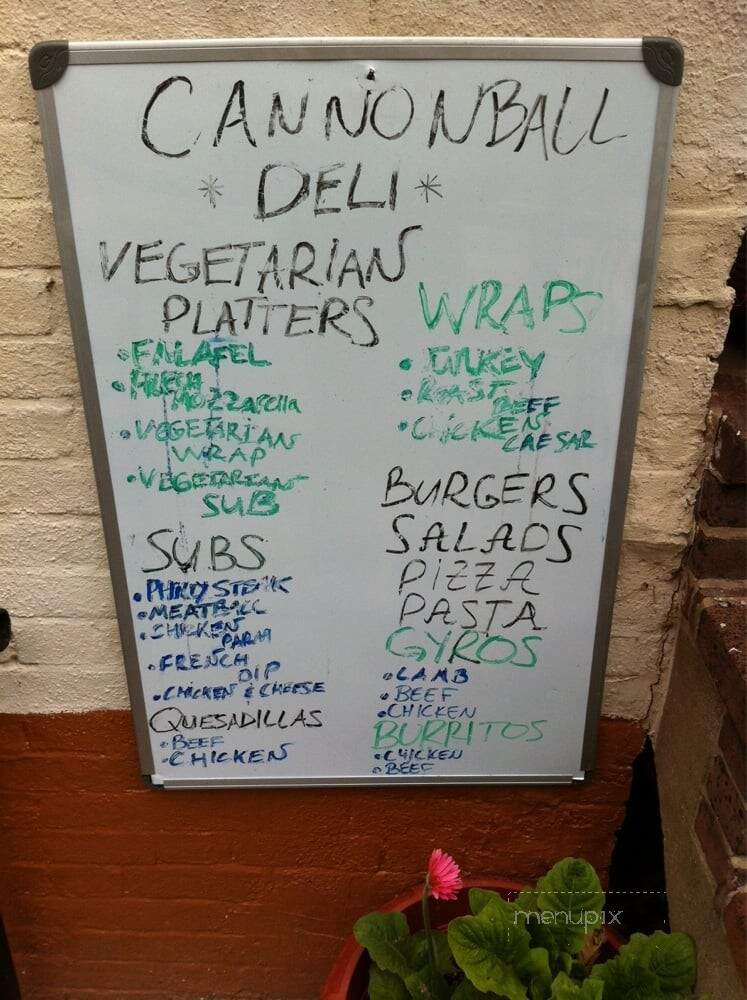 CANNONBALL
* DELI *
VEGETARIAN
PLATTERS
• FALAFEL
• FRESH
MOZZARELLA
• VEGETARIAN
WRAP
• VEGETARIAN
SUB
SUBS
• PHILLY STEAK
• MEATBALL
• CHICKEN
PARM
• FRENCH
DIP
• CHICKEN & CHEESE
QUESADILLAS
• BEEF
• CHICKEN
WRAPS
• TURKEY
• ROAST
BEEF
• CHICKEN
CAESAR
BURGERS
SALADS
PIZZA
PASTA
GYROS
• LAMB
• BEEF
• CHICKEN
BURRITOS
• CHICKEN
• BEEF
menupix